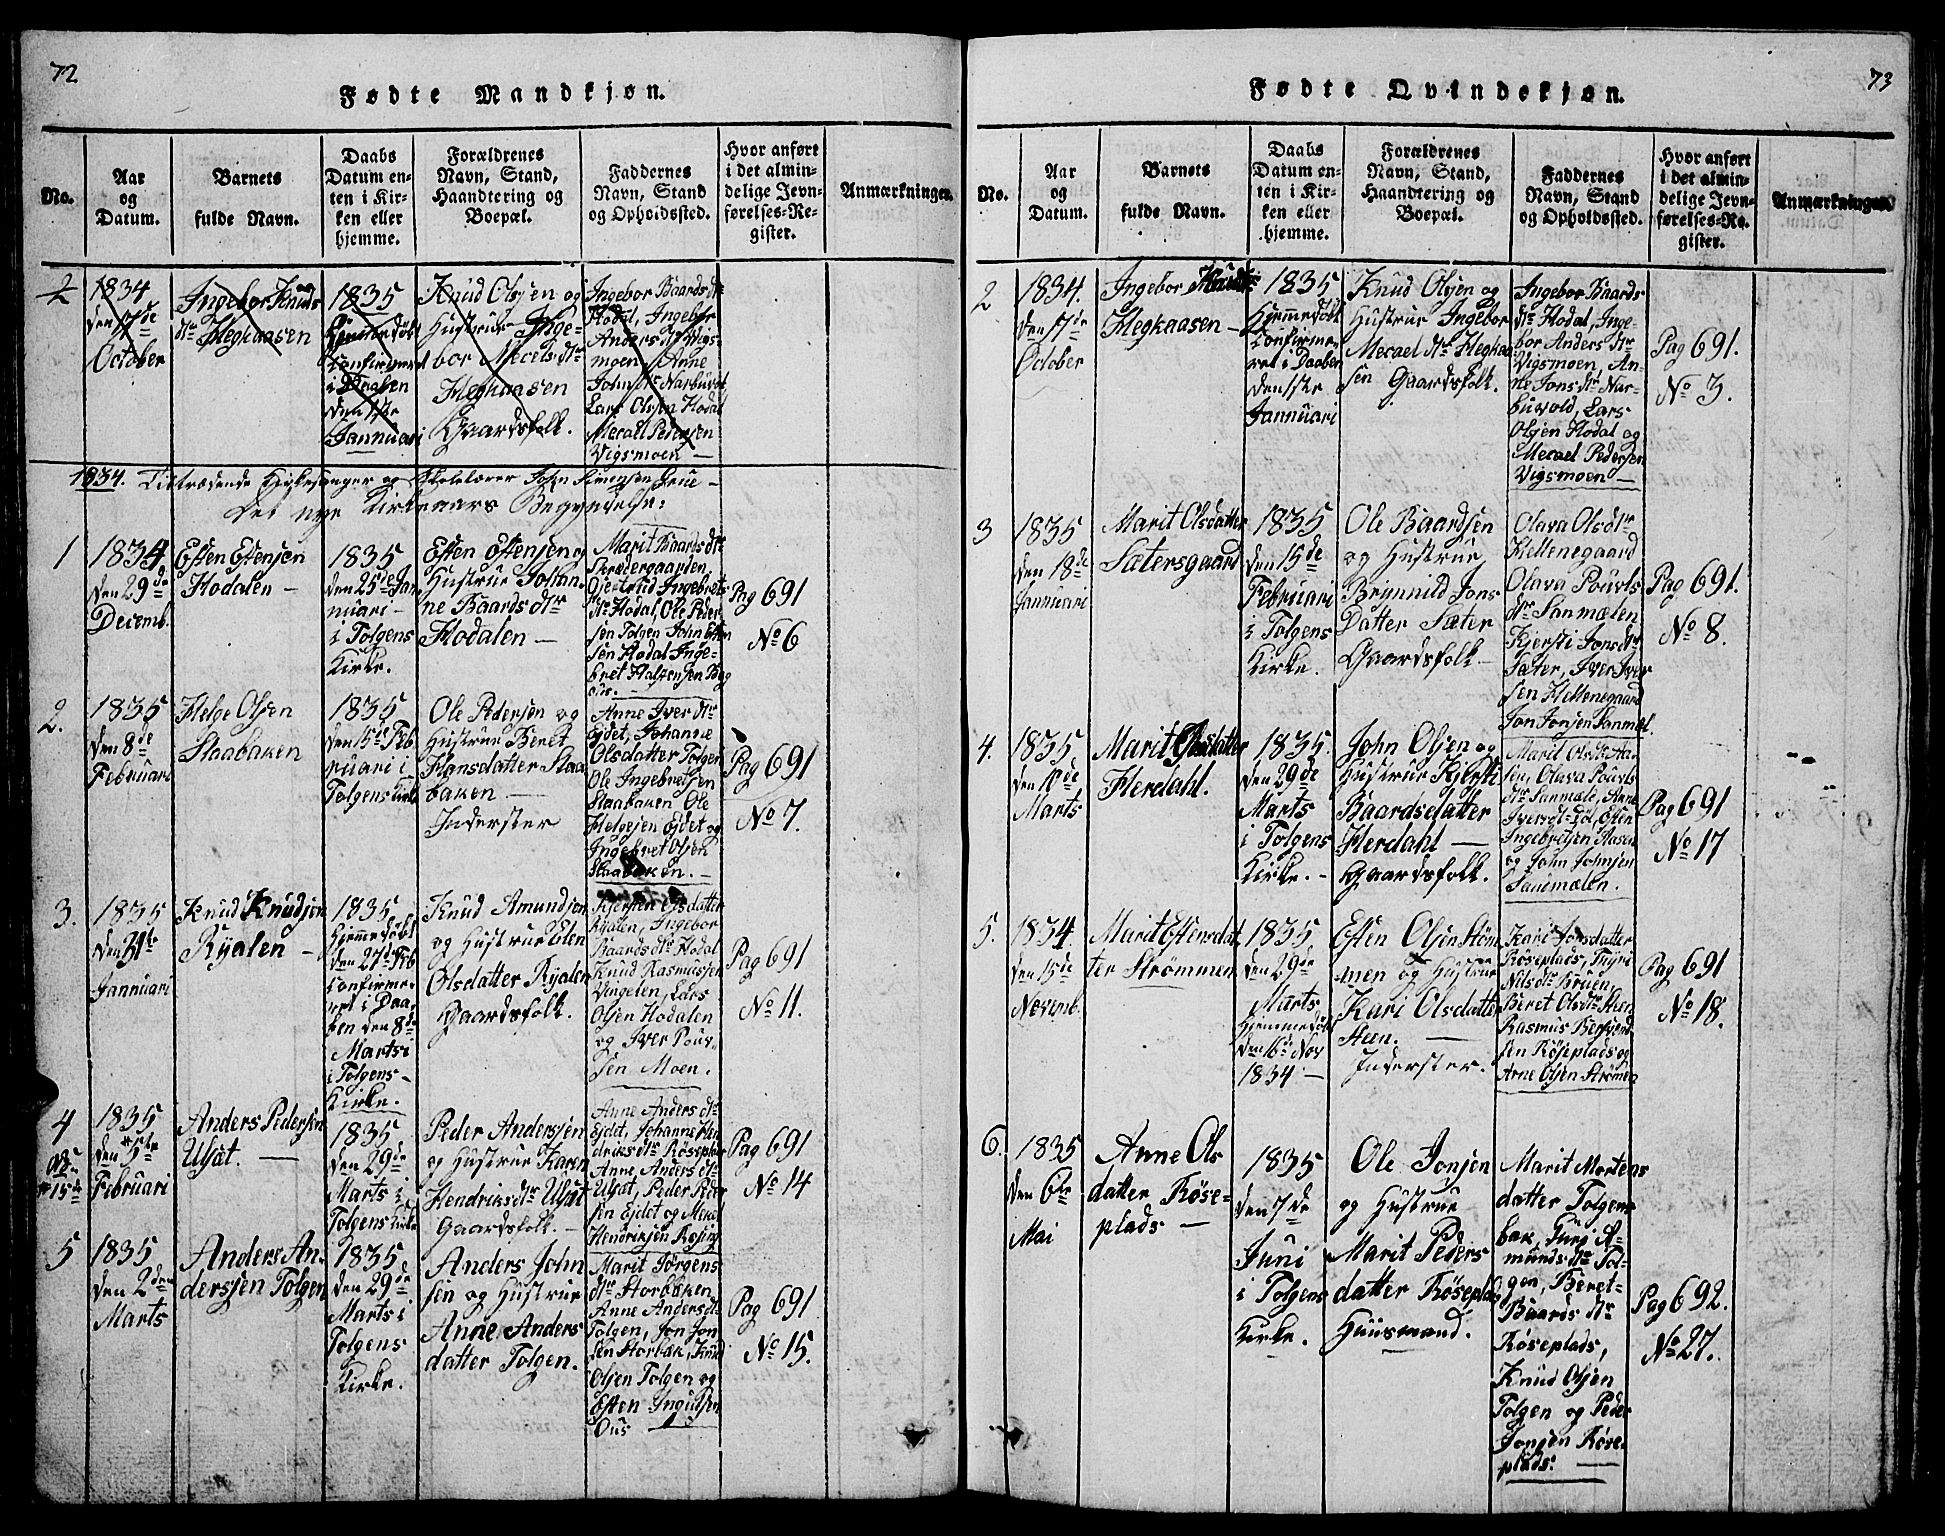 72
Fødte Mandkjøn.
No.
Aar
og
Datum.
Barnets
fulde Navn.
Daabs
Datum en-
ten i Kir-
ken eller
hjemme.
Forældrenes
Navn, Stand,
Haandtering og
Boepæl.
Faddernes
Navn, Stand
og Opholdssted.
Hvor anført
i det almin-
delige Jevn-
førelses-Re-
gister.
Anmærkninger.
2
1834
den 17de
October
Ingebor Knuds
dtr Hegkaasen
1835
Hjemmedøbt
Confirmeret
i Daaben
den 1ste
Jannuari
Knud Olsen og
Hustrue Inge-
bor Mecelsdtr
Hegkaasen
Gaardsfolk.
Ingebor Baardsdtr
Hodal, Ingebor
Andersdtr Vigs-
moen, Anne
Johnsdtr Narbuvol
Lars Olsen Hodal
Meraël Pedersen
Vigsmoen
1834. Tiltrædende Kirkesanger og Skolelærer John Simensen
Det nye Kirkeaars Begyndelse:
1
1834
den 29de
Decemb.
Esten Estensen
Hodalen
1835
den 25de Jan
nuari
i Tolgens
Kirke.
Esten Estensen og
Hustrue Johan-
ne Baardsdtr
Hodalen
Marit Baardsdtr
Skrædergaarden,
Ingebrets
dtr Hodal, Ole Peder
sen Tolgen John Esten
sen Hodal Inge-
bret Halfensen
Ous.
Pag 691
No 6
2.
1835
den 8de
Februari
Helge Olsen
Staabaken
1835
den 15de Feb
ruari i
Tolgens Kirke
Ole Pedersen og
Hustrue Beret
Hansdatter Staa
baken
Inderster
Anne Iversdtr
Ejdet, Johanne
Olsdatter Tolgen
Ole Ingebretsen
Staabaken Ole
Helgesen Ejdet og
Ingebret Olsen
Staabaken.
Pag 691
No 7.
3.
1835
den 31te
Jannuari
Knud Knudsen
Ryalen
1835
Hjemmedøbt
den 27de Feb
Confirme-
ret i Daa-
ben den 8de
Marts i
i Tolgens
Kirke.
Knud Amundsen
og Hustrue Elen
Olsdatter Ryalen
Gaardsfolk.
Kjersten Olsdatter
Ryalen, Ingebor
Baardsdtr Hodal
Knud Rasmussen
Vingelen, Lars
Olsen Hodalen
og Iver Pouv-
sen Moen.
Pag 691
No 11.
4
NB
# 15de
1835
den # 5te
Februari
Anders Pedersen
Utsat.
1835
den 29de
Marts i
Tolgens Kirke
Peder Andersen
og Hustrue Karen
Hendriksdtr Utsat
Gaardsfolk.
Anne Andersdtr
Ejdet, Johanne Hen
driksdtr Røseplas
Anne, Andersdtr
Utsat, Peder Peder
sen Ejdet og Merael
Hendriksen Røsing
Pag 691
No 14
5
1835
den 2den
Marts
Anders An-
derssen Tolgen
1835
den 29de
Marts i
Tolgens
Kirke.
Anders John
sen og Hustrue
Anne Anders
datter Tolgen.
Marit Jørgens
dtr Storbaken
Anne Andersdt.
Tolgen, Jon Jon
sen Storbak, Knud
Olsen Tolgen og
Esten Ingulfsen
Ous
Pag 691
No 15.
73
Fødte Qvindekjøn.
No.
Aar
og
Datum.
Barnets
fulde Navn.
Daabs
Datum en-
ten i Kir-
ken eller
hjemme.
Forældrenes
Navn, Stand,
Haandtering og
Boepæl.
Faddernes
Navn, Stand
og Opholdssted.
Hvor anført
i det almin-
delige Jevn-
førelses-Re-
gister.
Anmærkninger.
2
1834.
den 17de
October
Ingebor Knudsdtr
Hegkaasen
1835
Hjemmedøbt
Confirme-
ret i Daaben
den 1ste
Jannuari
Knud Olsen og
Hustrue Ingebor
Meraelsdtr Hegkaa
sen Gaardsfolk.
Ingebor Baards
dtr Hodal, Inge-
bor Andersdtr
Vigsmoen, An-
ne Jonsdtr Nar-
buvold, Lars
Olsen Hodal og
Merael Pedersen
Vigsmoen
Pag 691.
No 3.
3
1835
den 18de
Jannuari
Marit Olsdatter
Sætersgaard
1835
den 15de
Februari
i Tolgens
Kirke.
Ole Baardsen
og Hustrue
Brynnild Jons
Datter Sæter
Gaardsfolk
Olava Olsdtr
Hellenegaard
Olava Pouvls
dtr Sanmælen
Kjersti Jonsdtr
Sæter, Iver Iver
sen Hellenegaard
Jon Jonsen Sanmæl.
Pag 691.
No 8.
4.
1835
den 1ode
Marts
Marit Jonsdatter
Herdahl.
1835
den 29de
Marts
i Tolgens
Kirke.
John Olsen og
Hustrue Kjersti
Baardsdatter
Herdahl
Gaardsfolk.
Marit Olsdtr Aa-
sen, Olava Pouvls
dtr Sanmæle, Anne
Iversdt Esten
Ingebretsen Aasen
og John Johnsen
Sanmælen.
Pag 691
No 17
5.
1834.
den 15de
Novemb.
Marit Estensdat
ter Strømmen
1835
den 29de
Marts
Hjemmedøbt
den 16de Nov
1834
Esten Olsen Strøm
men og Hustrue
Kari Olsdatter
Steen.
Inderster.
Kari Jonsdatter
Røseplads, Thyri
Nilsdtr Bruen
Beret Olsdtr Steen
Rasmus Bersvend
sen Røseplads og
Arne Olsen Strømen
Pag 691
No 18.
6.
1835
den 6te
Mai
Anne Ols
datter Røse-
plads
1835
den 7de
Juni
i Tolgens
Kirke.
Ole Jonsen
og Hustrue
Marit Peders
datter Røseplads
Huusmand.
Marit Mortens
datter Tolgens
bak, Turi A-
mundsdtr Tol-
gen, Beret
Baardsdtr
Røseplads,
Knud Olsen
Tolgen og Peder
Jonsen Røse
plads.
Pag 692.
No 27.